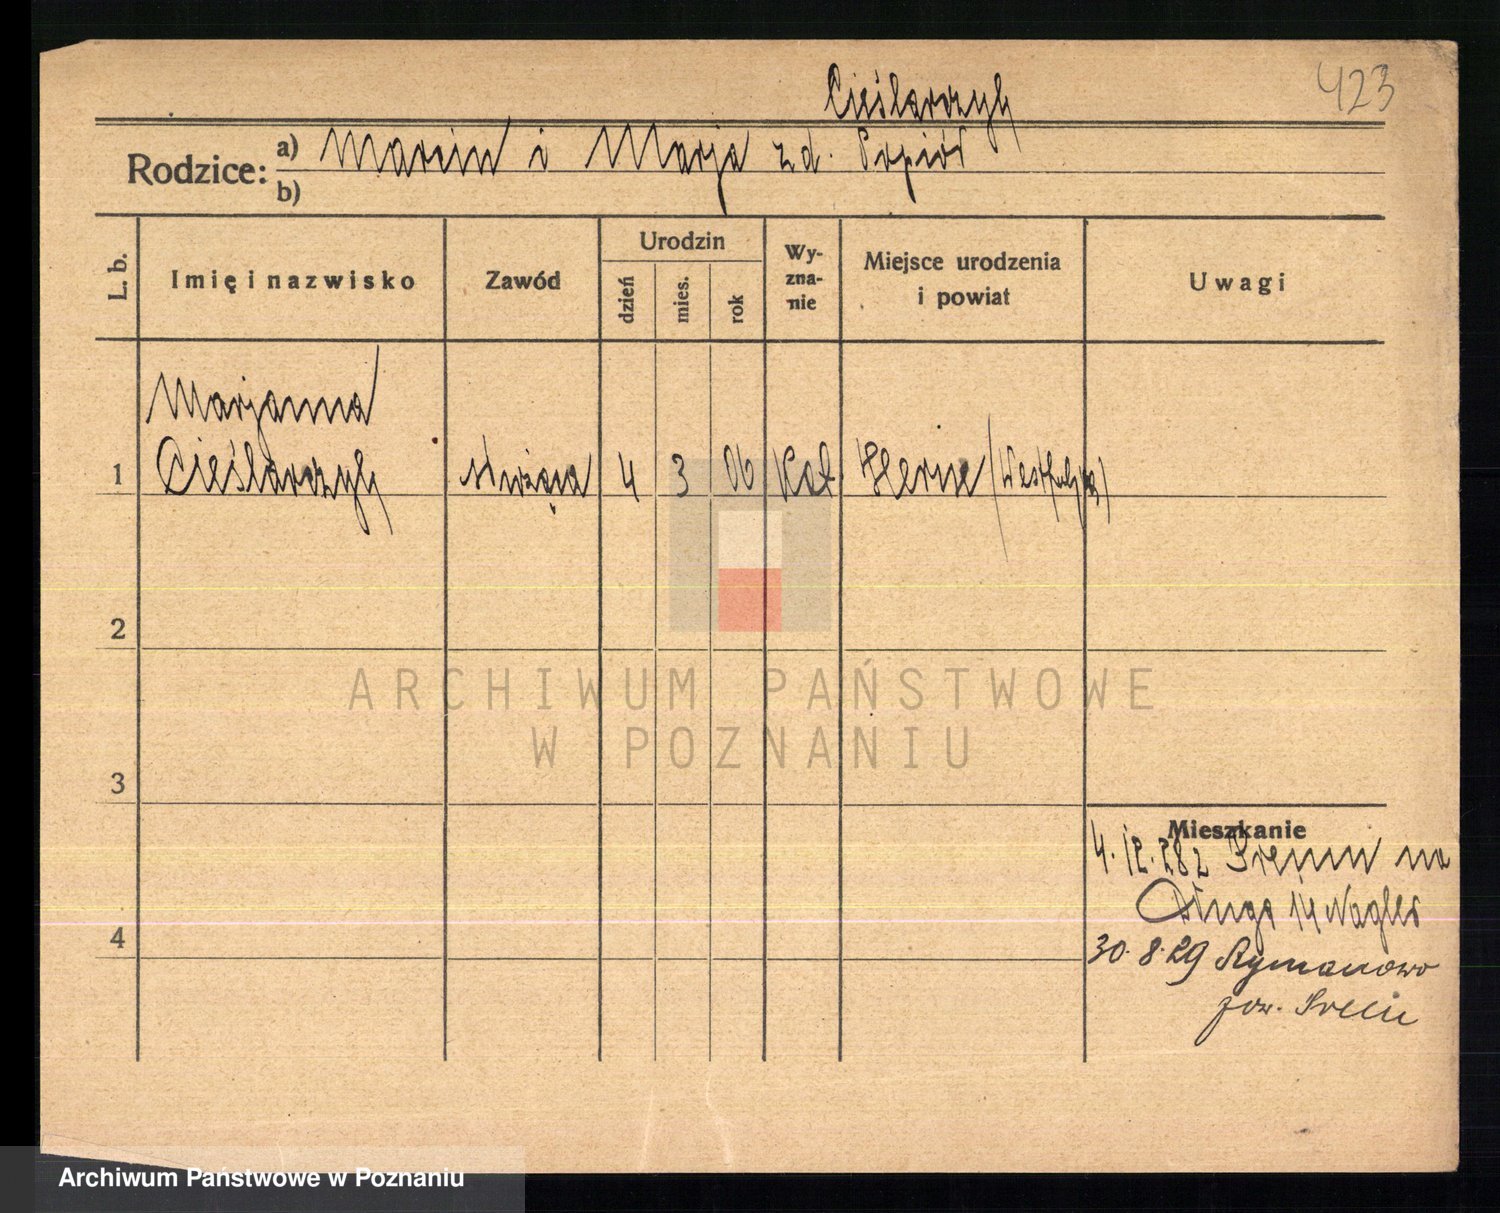 423
Cieślarczyk
Rodzice: a) Marcin i Marja zd.
b)
L. b.
Imię i nazwisko
Zawód
Urodzin
dzień
mies.
rok
Wy-
zna-
nie
Miejsce urodzenia
i powiat
Uwagi
Marjanna
1 Cieślarczyk służąca 4 3 06 Kat. Herne (Westfalja)
2
3
4
Mieszkanie
4. 12. 28 z Śremu na
Długa 14
30. 8. 29 Rymanowo
pow. Śrem
ARCHIWUM PAŃSTWOWE
W POZNANIU
Archiwum Państwowe w Poznaniu